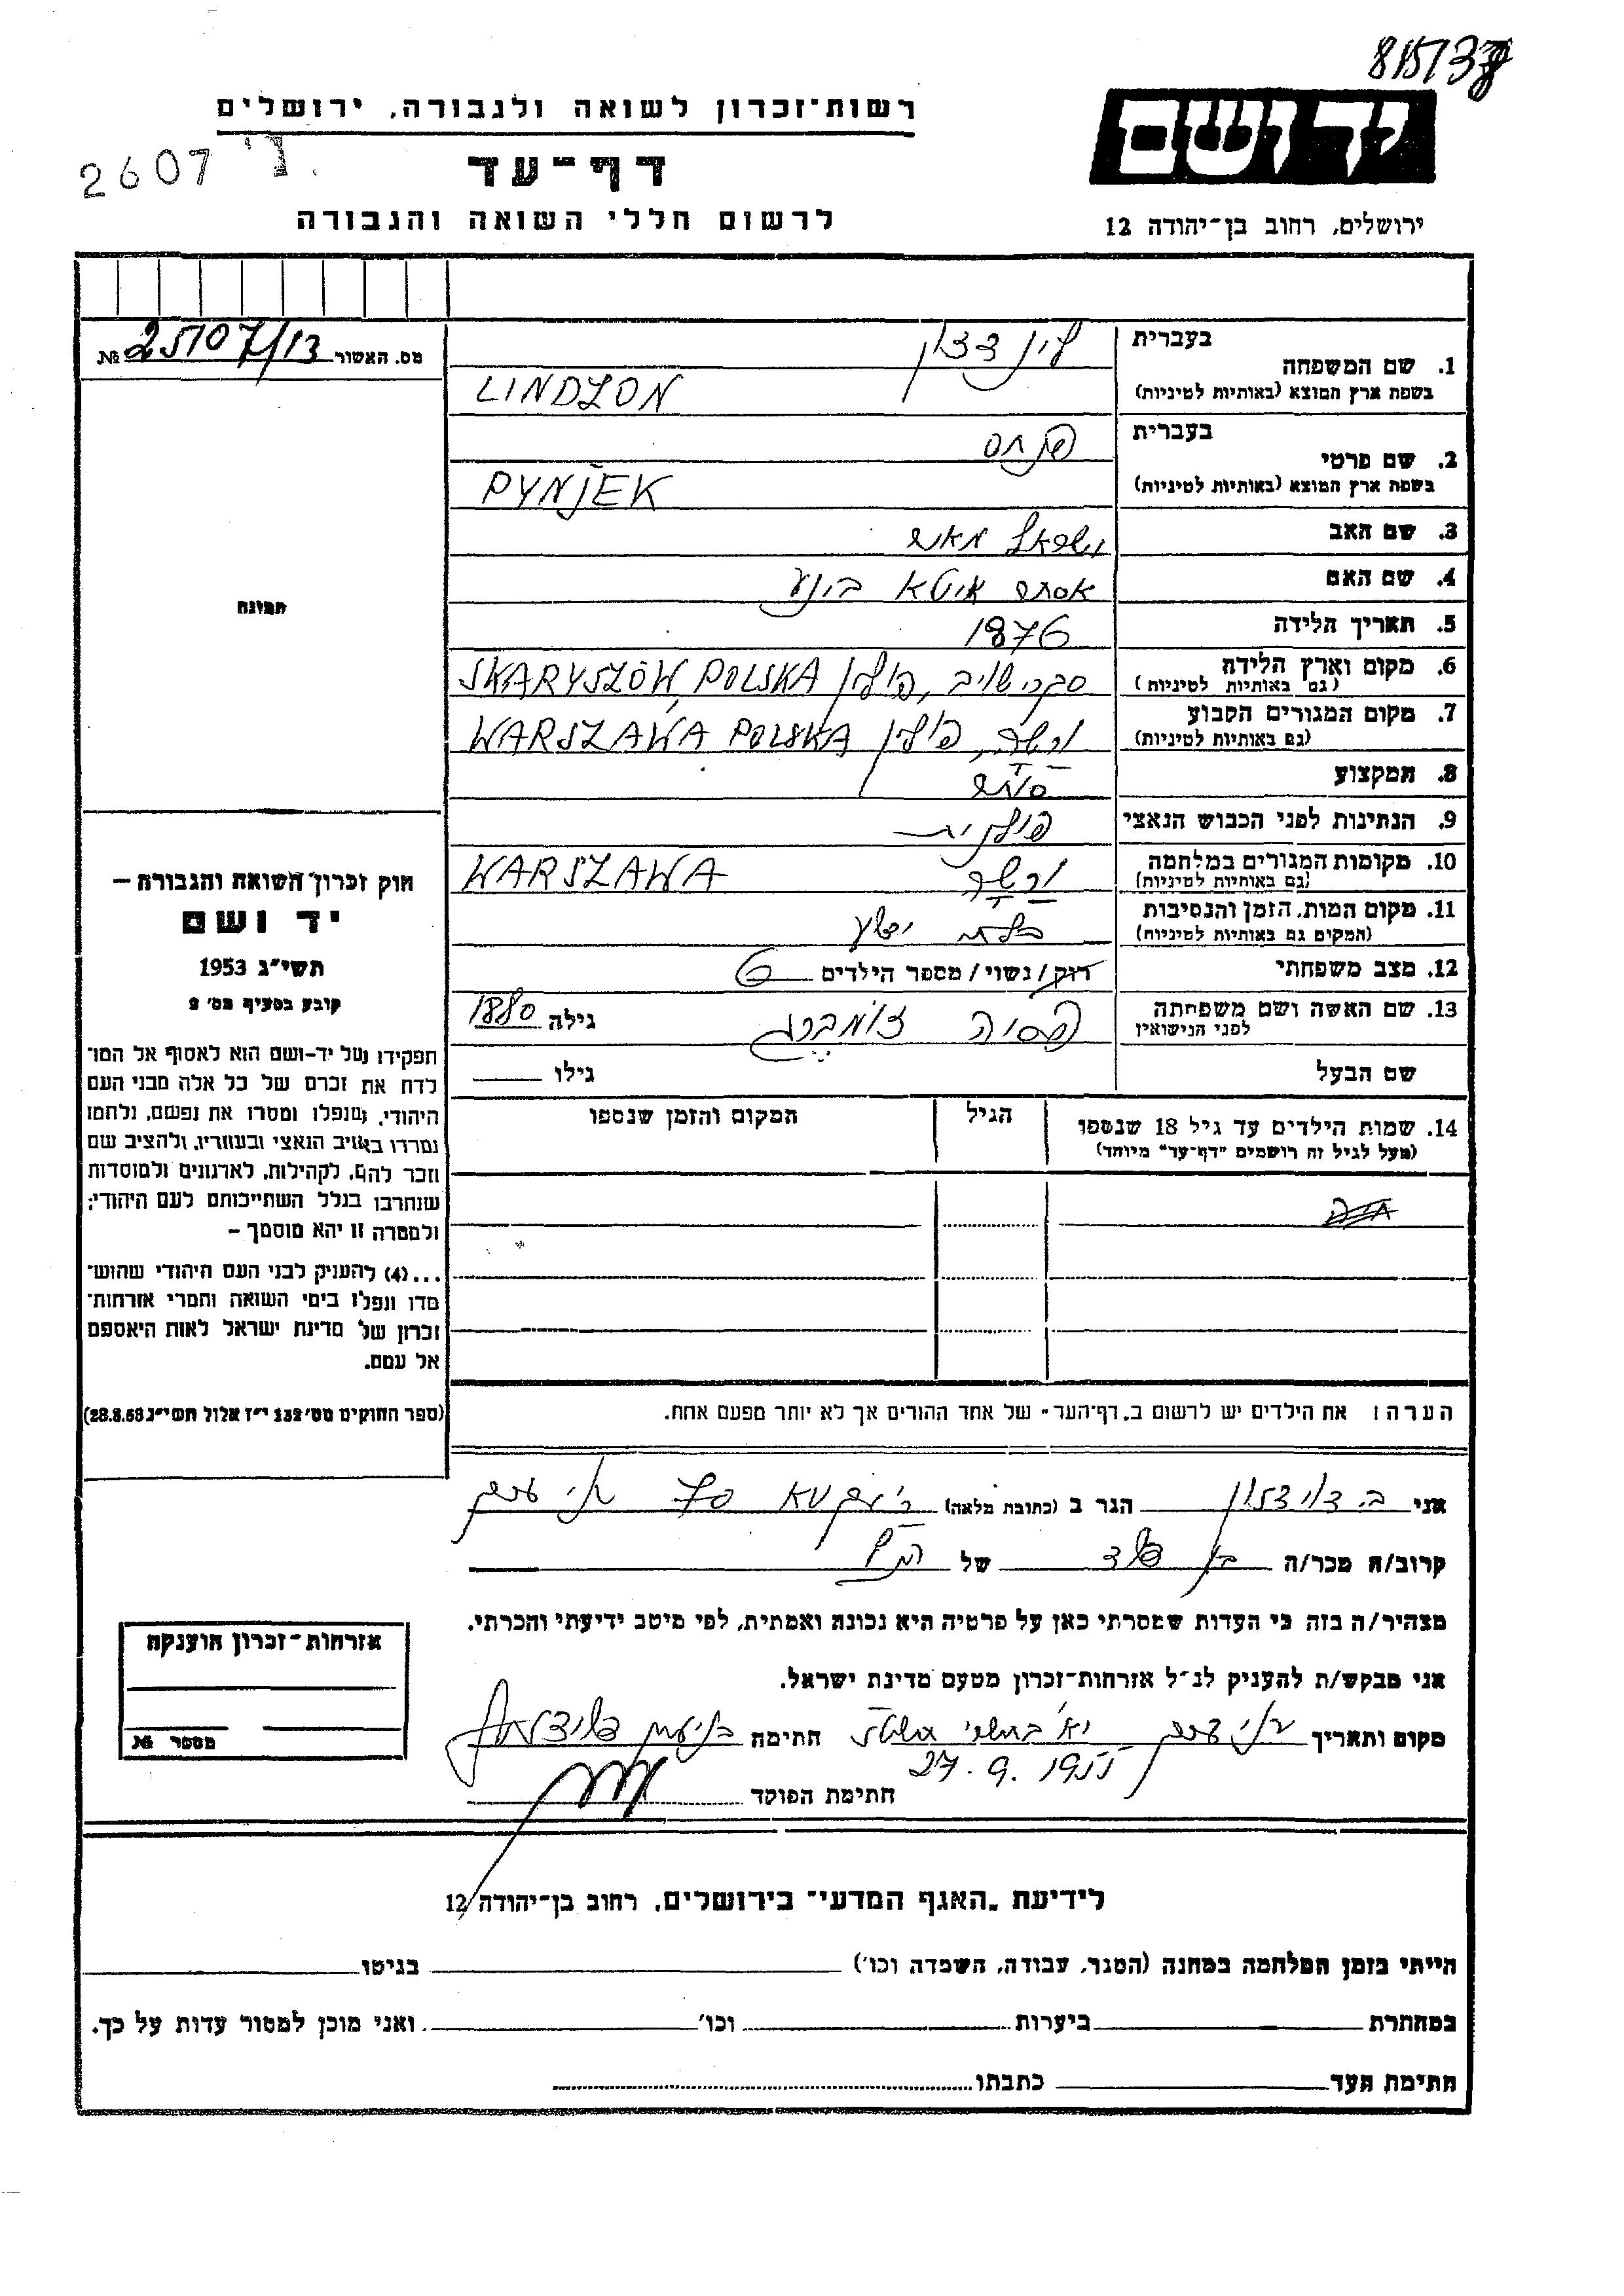 815138
רשות־זכרון לשואה ולגבורה, ירושלים
יד ושם
2607 ני
דף־עד
לרשום חללי השואה והגבורה
ירושלים, רחוב בן־יהודה 12
מס. האשור № 25107/13
1. שם המשפחה
בעברית
בשפת ארץ המוצא (באותיות לטיניות)
LINDZON
2. שם פרטי
בעברית פנחס
בשפת ארץ המוצא (באותיות לטיניות)
PYNJEK
3. שם האב ישראל מאיר
4. שם האם אסתר איטא בינע
5. תאריך הלידה 1876
6. מקום וארץ הלידה
(גם באותיות לטיניות)
פולין SKARYSZÓW, POLSKA
7. מקום המגורים הקבוע
(גם באותיות לטיניות)
ורשה, פולין WARSZAWA POLSKA
8. המקצוע סוחר
9. הנתינות לפני הכבוש הנאצי פולנית
10. מקומות המגורים במלחמה
(גם באותיות לטיניות)
ורשה WARSZAWA
11. מקום המות, הזמן והנסיבות
(המקום גם באותיות לטיניות)
בלתי ידוע
12. מצב משפחתי רוק/נשוי/מספר הילדים 6
13. שם האשה ושם משפחתה
לפני הנישואין
גילה 1880
שם הבעל גילו
14. שמות הילדים עד גיל 18 שנספו
(מעל לגיל זה רושמים "דף־עד" מיוחד)
הגיל
המקום והזמן שנספו
הערה: את הילדים יש לרשום ב„דף־העד" של אחד ההורים אך לא יותר מפעם אחת.
תמונה
חוק זכרון השואה והגבורה –
יד ושם
תשי"ג 1953
קובע בסעיף מס' 2
תפקידו של יד-ושם הוא לאסוף אל המו־
לדת את זכרם של כל אלה מבני העם
היהודי, שנפלו ומסרו את נפשם, נלחמו
ומרדו באויב הנאצי ובעוזריו, ולהציב שם
וזכר להם, לקהילות, לארגונים ולמוסדות
שנחרבו בגלל השתייכותם לעם היהודי;
ולמטרה זו יהא מוסמך –
...(4) להעניק לבני העם היהודי שהוש־
מדו ונפלו בימי השואה והמרי אזרחות־
זכרון של מדינת ישראל לאות היאספם
אל עמם.
(ספר החוקים מס' 132 י"ז אלול תשי"ג 28.8.53)
אני הגר ב (כתובת מלאה) תל אביב
קרוב/ה מכר/ה בן דוד של הנ"ל
מצהיר/ה בזה כי העדות שמסרתי כאן על פרטיה היא נכונה ואמתית, לפי מיטב ידיעתי והכרתי.
אני מבקש/ת להעניק לנ"ל אזרחות־זכרון מטעם מדינת ישראל.
מקום ותאריך תל אביב י"א בתשרי חתימה
27.9.1955
חתימת הפוקד
אזרחות־זכרון הוענקה
מספר №
לידיעת „האגף המדעי" בירושלים, רחוב בן־יהודה 12
הייתי בזמן המלחמה במחנה (הסגר, עבודה, השמדה וכו') בגיטו
במחתרת ביערות וכו' ואני מוכן למסור עדות על כך.
חתימת העד כתבתו